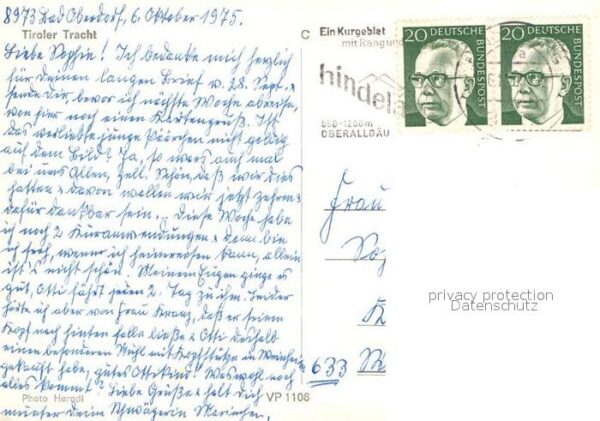 8973 Bad Oberdorf, 6. Oktober 1975.
Tiroler Tracht
C
Liebe Sophie! Ich bedanke mich herzlich
für Deinen langen Brief v. 28. Sept. &
sende Dir, bevor ich nächste Woche abreise,
von hier noch einen Kartengruß. Ist
das verliebte junge Pärchen nicht goldig
auf dem Bild? Ja, so wars auch mal
bei uns Allen, gell. Schön, daß wir dies
hatten & davon wollen wir jetzt zehren &
dafür dankbar sein. Diese Woche habe
ich noch 2 Kuranwendungen & dann bin
ich froh, wenn ich heimreisen kann, allein
ist's nicht schön. Meinem Eugen ginge es
gut, Otti fährt jeden 2. Tag zu ihm. Leider
hörte ich aber von Frau Kranz, daß er seinen
Kopf nach hinten fallen ließe & Otti deshalb
einen besonderen Stuhl mit Kopfstütze in
gekauft habe, gutes Ottikind. Was wohl noch
alles kommt? Liebe Grüße & halt Dich
munter Deine Schwägerin Mariechen.
Photo Herndl
VP 1106
Ein Kurgebiet
mit Rang und
hindela
850-1200m
OBERALLGÄU
20 DEUTSCHE BUNDESPOST
20 DEUTSCHE BUNDESPOST
Frau
So
K
633
privacy protection
Datenschutz